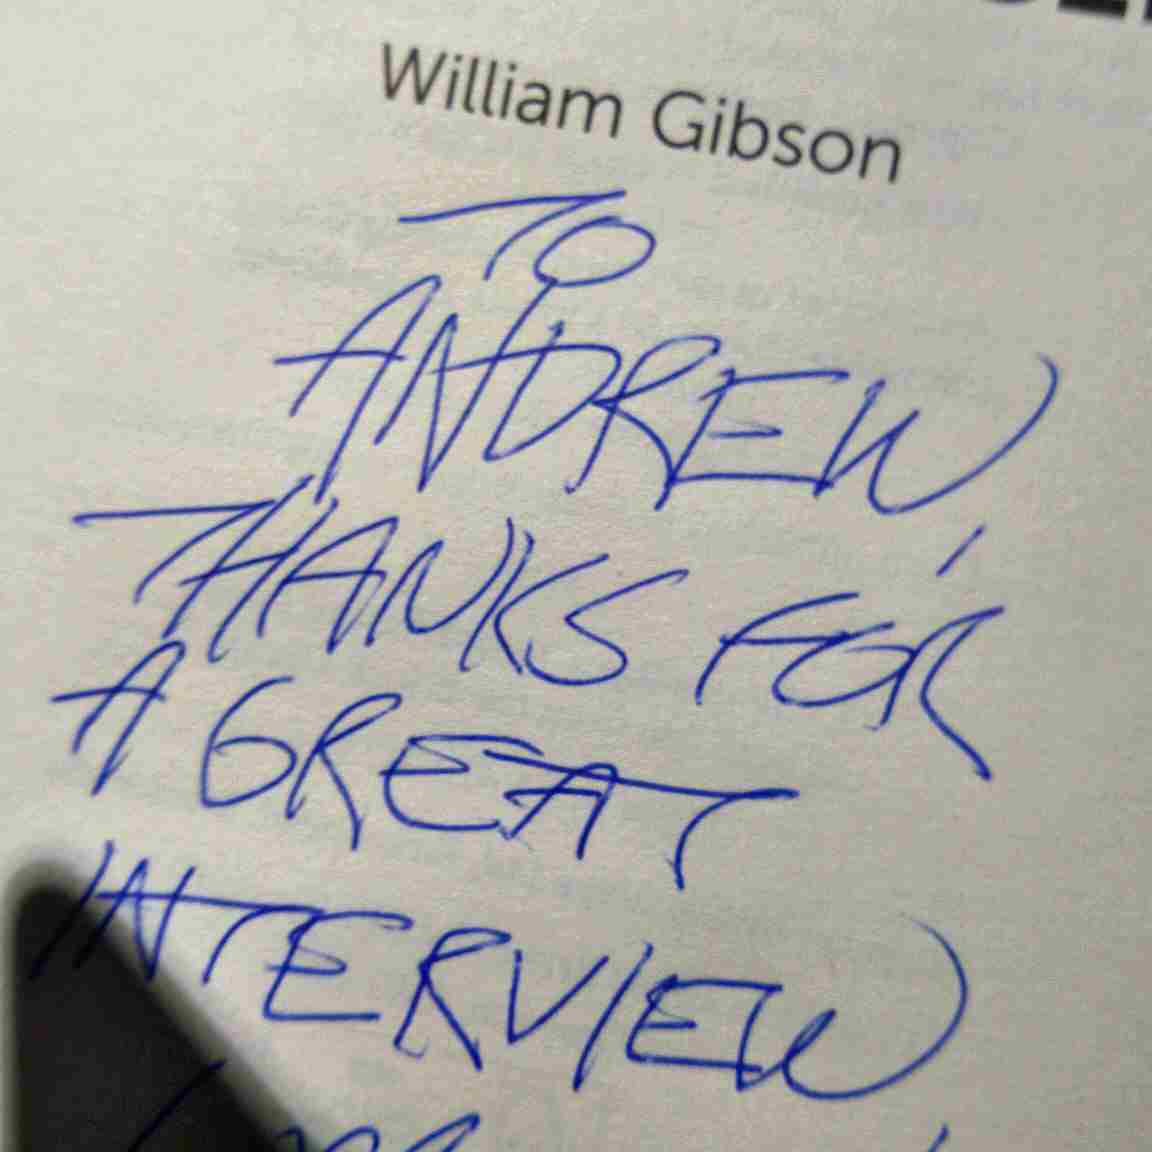 William Gibson
TO
ANDREW,
THANKS FOR
A GREAT
INTERVIEW